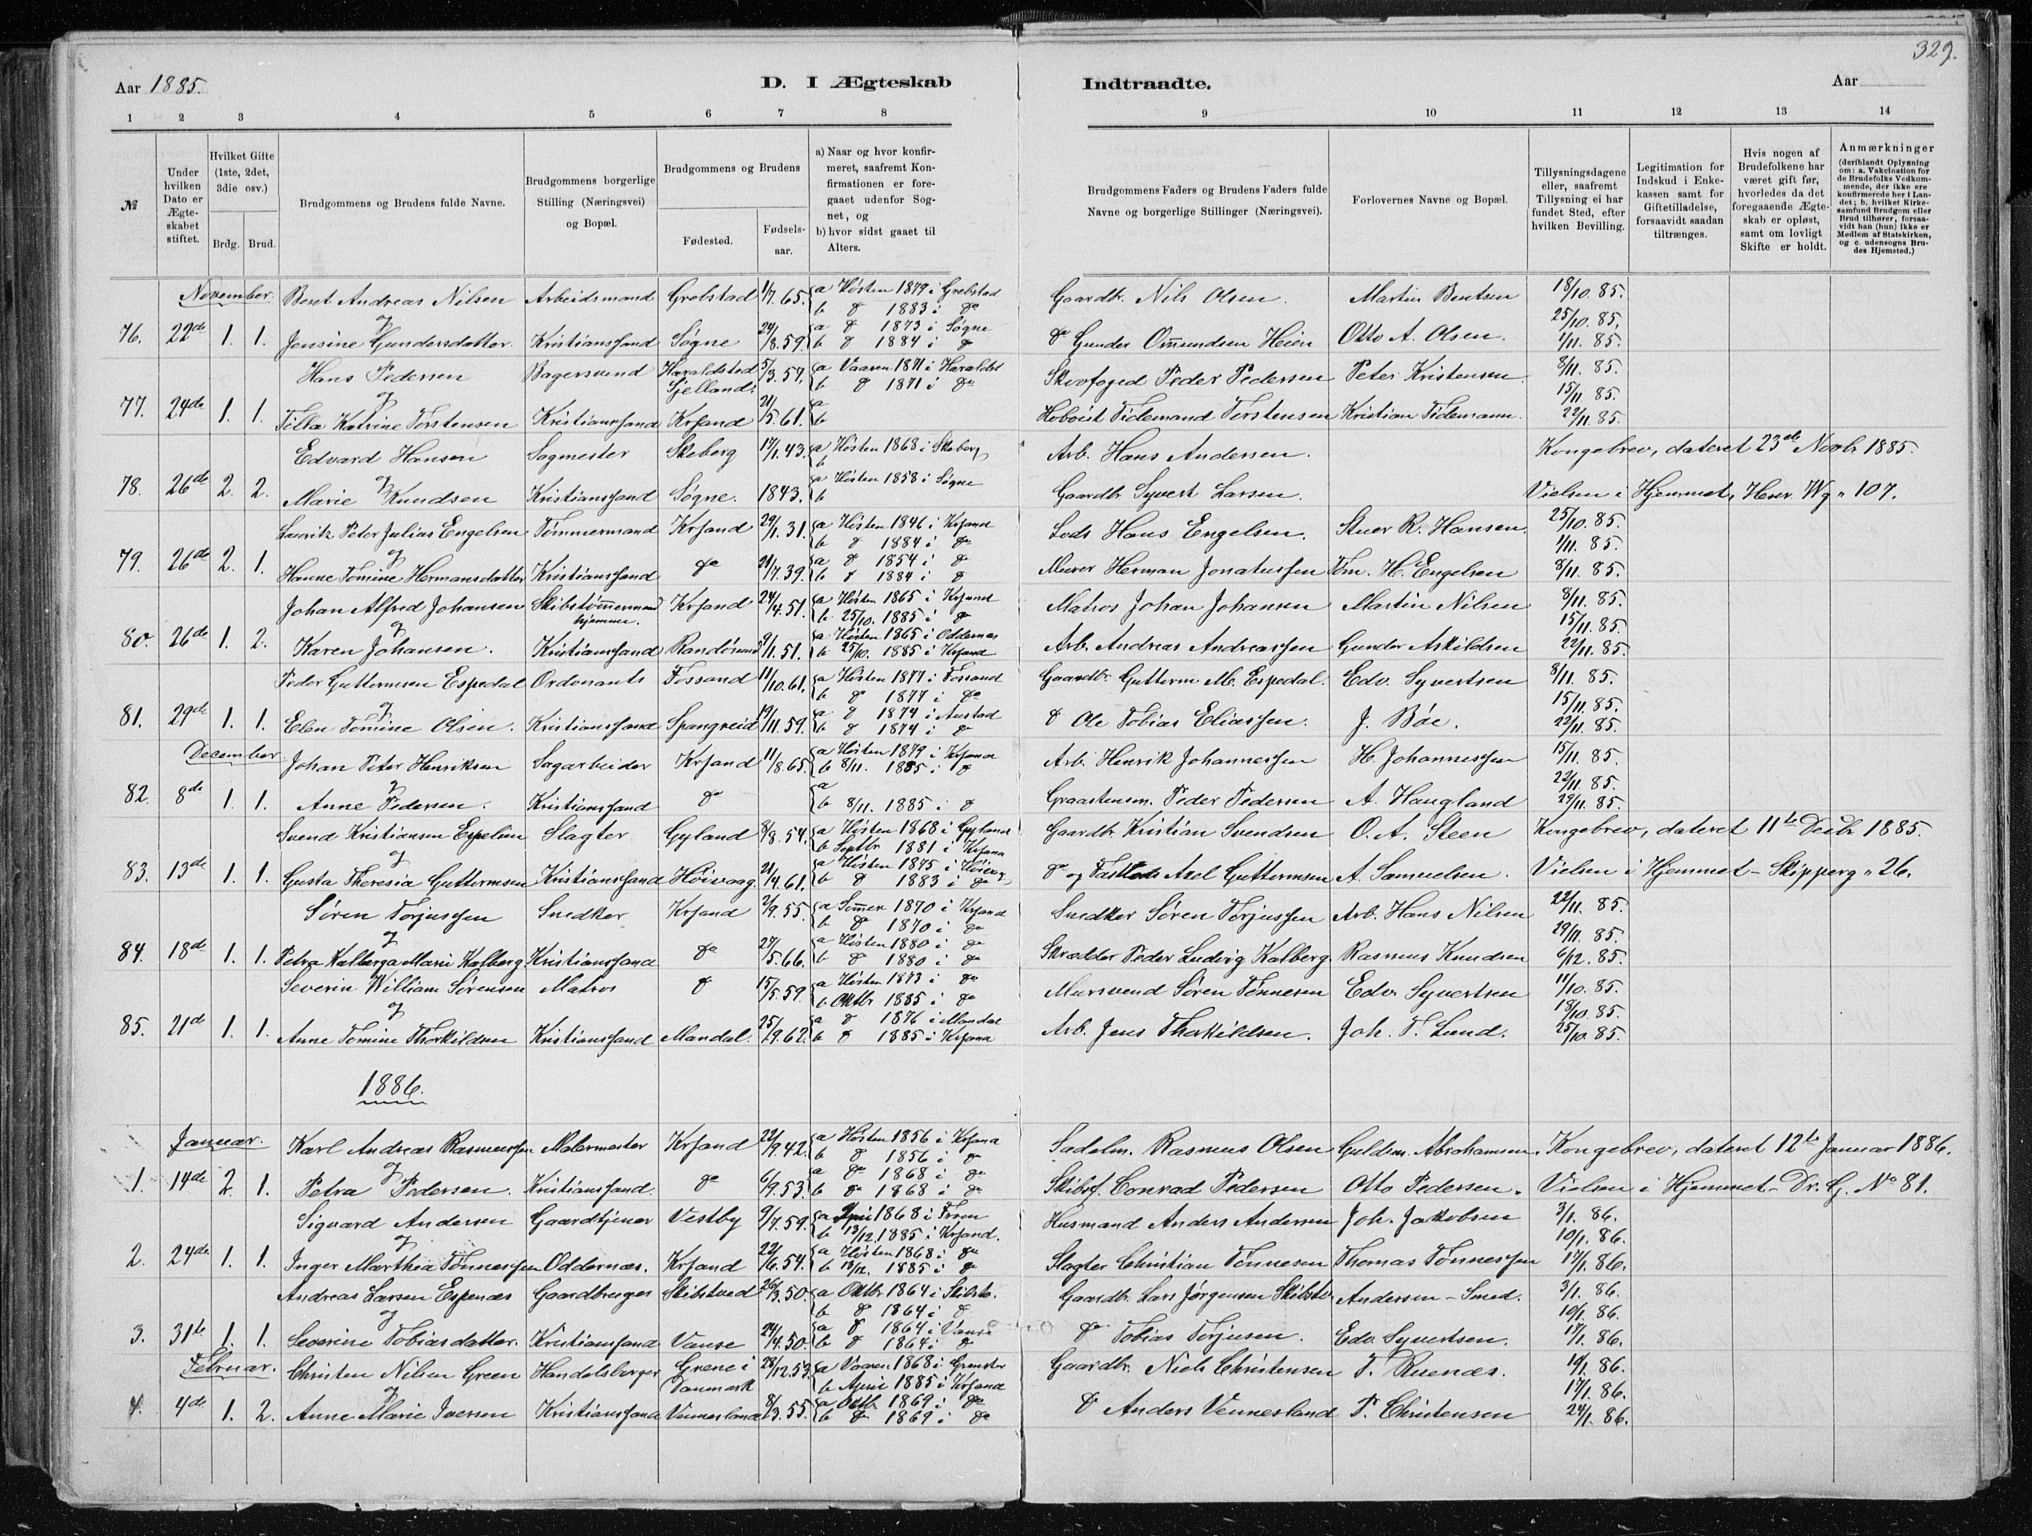 329.
Aar 1885.
D. I Ægteskab
Indtraadte.
Aar
1 2 3 4 5 6 7 8 9 10 11 12 13 14
№
Under hvilken Dato er Ægteskabet stiftet.
Hvilket Gifte (1ste, 2det, 3die osv.)
Brdg. Brud.
Brudgommens og Brudens fulde Navne.
Brudgommens borgerlige Stilling (Næringsvei) og Bopæl.
Brudgommens og Brudens
Fødested.
Fødselsaar.
a) Naar og hvor konfirmeret, saafremt Konfirmationen er foregaaet udenfor Sognet, og
b) hvor sidst gaaet til Alters.
Brudgommens Faders og Brudens Faders fulde Navne og borgerlige Stillinger (Næringsvei).
Forlovernes Navne og Bopæl.
Tillysningsdagene eller, saafremt Tillysning ei har fundet Sted, efter hvilken Bevilling.
Legitimation for Indskud i Enkekassen samt for Giftetilladelse, forsaavidt saadan tiltrænges.
Hvis nogen af Brudefolkene har været gift før, hvorledes da det foregaaende Ægteskab er opløst, samt om lovligt Skifte er holdt.
Anmærkninger (deriblandt Oplysning om: a. Vakcination for de Brudefolks Vedkommende, der ikke ere konfirmerede her i Landet; b. hvilket Kirkesamfund Brudgom eller Brud tilhører, forsaavidt han (hun) ikke er Medlem af Statskirken, og c. udensogns Brudes Hjemsted.)
November. Bent Andreas Nilsen Arbeidsmand Grebstad 1/7. 65. a Høsten 1879 i Grebstad Gaardbr. Nils Olsen. Martin Bentsen 18/10. 85.
og b do 1883 i do 25/10. 85.
76. 22de 1. 1. Jensine Gundersdatter. Kristianssand Søgne 24/8. 59. a do 1873 i Søgne b do 1884 i do do Gunder Omundsen Heien Otto A. Olsen. 1/11. 85.
Hans Pedersen Bagersvend Haraldsted Sjelland. 5/3. 57. a Vaaren 1871 i Haraldst b do 1871 i do Skovfoged Peder Pedersen Peter Kristensen 8/11. 85.
og 15/11 85.
77. 24de 1. 1. Tilla Katrine Torstensen Kristianssand Krsand 21/5. 61. a b Hoboist Tidemand Torstensen Kristian Tidemann. 22/11. 85.
Edvard Hansen Sagmester Skeberg 17/1. 43. a Høsten 1868 i Skeberg b Arb. Hans Andersen. Kongebrev, dateret 23de Novbr 1885.
og
78. 26de 2. 2. Marie Knudsen Kristianssand Søgne. 1843. a Høsten 1858 i Søgne b Gaardbr Syvert Larsen. Vielsen i Hjemmet,
Lauritz Peter Julius Engelsen Tømmermand Krsand 29/1. 31. a Høsten 1846 i Krsand b do 1884 i do Lods Hans Engelsen. Stuer R. Hansen. 25/10. 85.
og 1/11. 85.
79. 26de 2. 1. Hanne Tomine Hermansdatter Kristianssand do 21/7. 39. a do 1854 i do b do 1884 i do Murer Herman Jonatussen Tøm. H. Engelsen 8/11. 85.
Johan Alfred Johansen Skibstømmermand hjemme. Krsand 24/4. 51. a Høsten 1865 i Krsand b 25/10. 1885 i do Matros Johan Johansen Martin Nilsen 8/11. 85.
og 15/11. 85.
80. 26de 1. 2. Karen Johansen. Kristianssand Randøsund 9/11. 51. a Høsten 1865 i Oddernæs b 25/10. 1885 i Krsand Arb. Andreas Andreassen Gunder Askildsen 22/11. 85.
Peder Guttormsen Espedal Ordonants Fossand 11/10. 61. a Høsten 1877 i Fossand b do 1877 i do Gaardbr Guttorm M. Espedal. Edv. Syvertsen 8/11. 85.
og 15/11. 85.
81. 29de 1. 1. Elen Tomine Olsen. Kristianssand Spangreid 19/11. 59. a do 1874 i Austad b do 1874 i do do Ole Tobias Eliassen. J. Bøe. 22/11. 85.
December. Johan Peter Henriksen Sagarbeider Krsand 11/8. 65. a Høsten 1879 i Krsand b 8/11. 1885 i do Arb. Henrik Johannessen H. Johannessen 15/11. 85.
og 22/11. 85.
82. 8de 1. 1. Anne Pedersen. Kristianssand do a b 8/11. 1885 i do Graastensm. Peder Pedersen A. Haugland 29/11. 85.
Svend Kristiansen Espeline Slagter Gyland 8/8. 54. a Høsten 1868 i Gyland b Septbr 1881 i Krsand Gaardbr Kristian Svendsen O. A. Steen Kongebrev, dateret 11te Decbr 1885.
og
83. 13de 1. 1. Gusta Theresia Guttormsen Kristianssand Høivaag 21/4. 61. a Høsten 1875 i Høivag b do 1883 i do do og Axel Guttormsen A. Samuelsen. Vielsen i Hjemmet - Skipperg. 26.
Søren Torjussen Snedker Krsand 2/9. 55. a Sommer 1870 i Krsand b do 1870 i do Snedker Søren Torjussen Arb. Hans Nilsen 22/11. 85.
og 29/11. 85.
84. 18de 1. 1. Petra Kalberga Marie Kalberg Kristianssand do 27/5. 66. a Høsten 1880 i do b do 1880 i do Skrædder Peder Ludvig Kalberg Rasmus Knudsen 6/12. 85.
Severin William Sørensen Matros do 15/5. 59. a Høsten 1873 i do b Oktbr 1885 i do Mursvend Søren Tønnesen Edv. Syvertsen 11/10. 85.
og 18/10. 85.
85. 21de 1. 1. Anne Tomine Thorkildsen Kristianssand Mandal. 25/9. 62. a do 1876 i Mandal b do 1885 i Krsand Arb. Jens Thorkildsen. Joh. T. Lund. 25/10. 85.
1886.
Januar. Karl Andreas Rasmussen Malermester Krsand 22/9. 42. a Høsten 1856 i Krsand b do 1856 i do Sadelm. Rasmus Olsen Guldsm. Abrahamsen. Kongebrev, dateret 12te Januar 1886.
og
1. 14de 2. 1. Petra Pedersen. Kristianssand. do 6/9. 53. a do 1868 i do b do 1868 i do Skibsf. Conrad Pedersen Otto Pedersen. Vielsen i Hjemmet - Dr. G. No 81.
Sigvard Andersen Gaardtjener Vestby 9/7. 59. a April 1868 i b 13/12. 1885 i Krsand. Husmand Anders Andersen Joh. Jakobsen 3/1. 86.
og 10/1. 86.
2. 24de 1. 1. Inger Marthea Tønnessen Oddernæs. Krsand 22/6. 54. a Høsten 1868 i do b 13/12. 1885 i do Slagter Christian Tønnesen Thomas Tønnessen 17/1. 86.
Andreas Larsen Espenæs Gaardbruger Skibstved 26/3. 50. a Oktbr 1864 i Skibstv. b do 1864 i do Gaardbr. Lars Jørgensen Skibstv Andersen - Smed. 3/1. 86.
og 10/1. 86.
3. 31te 1. 1. Severine Tobiasdatter. Kristianssand Vanse 24/4. 50. a do 1864 i Vanse b do 1864 i do do Tobias Torjusen. Edv. Syvertsen. 17/1. 86.
Februar. Christen Nilsen Green Handelsborger Grene i Danmark 28/12. 53. a Vaaren 1868 i b April 1885 i Krsand Gaardbr. Niels Christensen T. Ruenæs. 10/1. 86.
og 17/1. 86.
4. 4de 1. 2. Anne Marie Iversen Kristianssand Vennesland 8/3. 55. a Oktb 1869 i do b do 1869 i do do Anders Vennesland P. Christensen 24/1. 86.